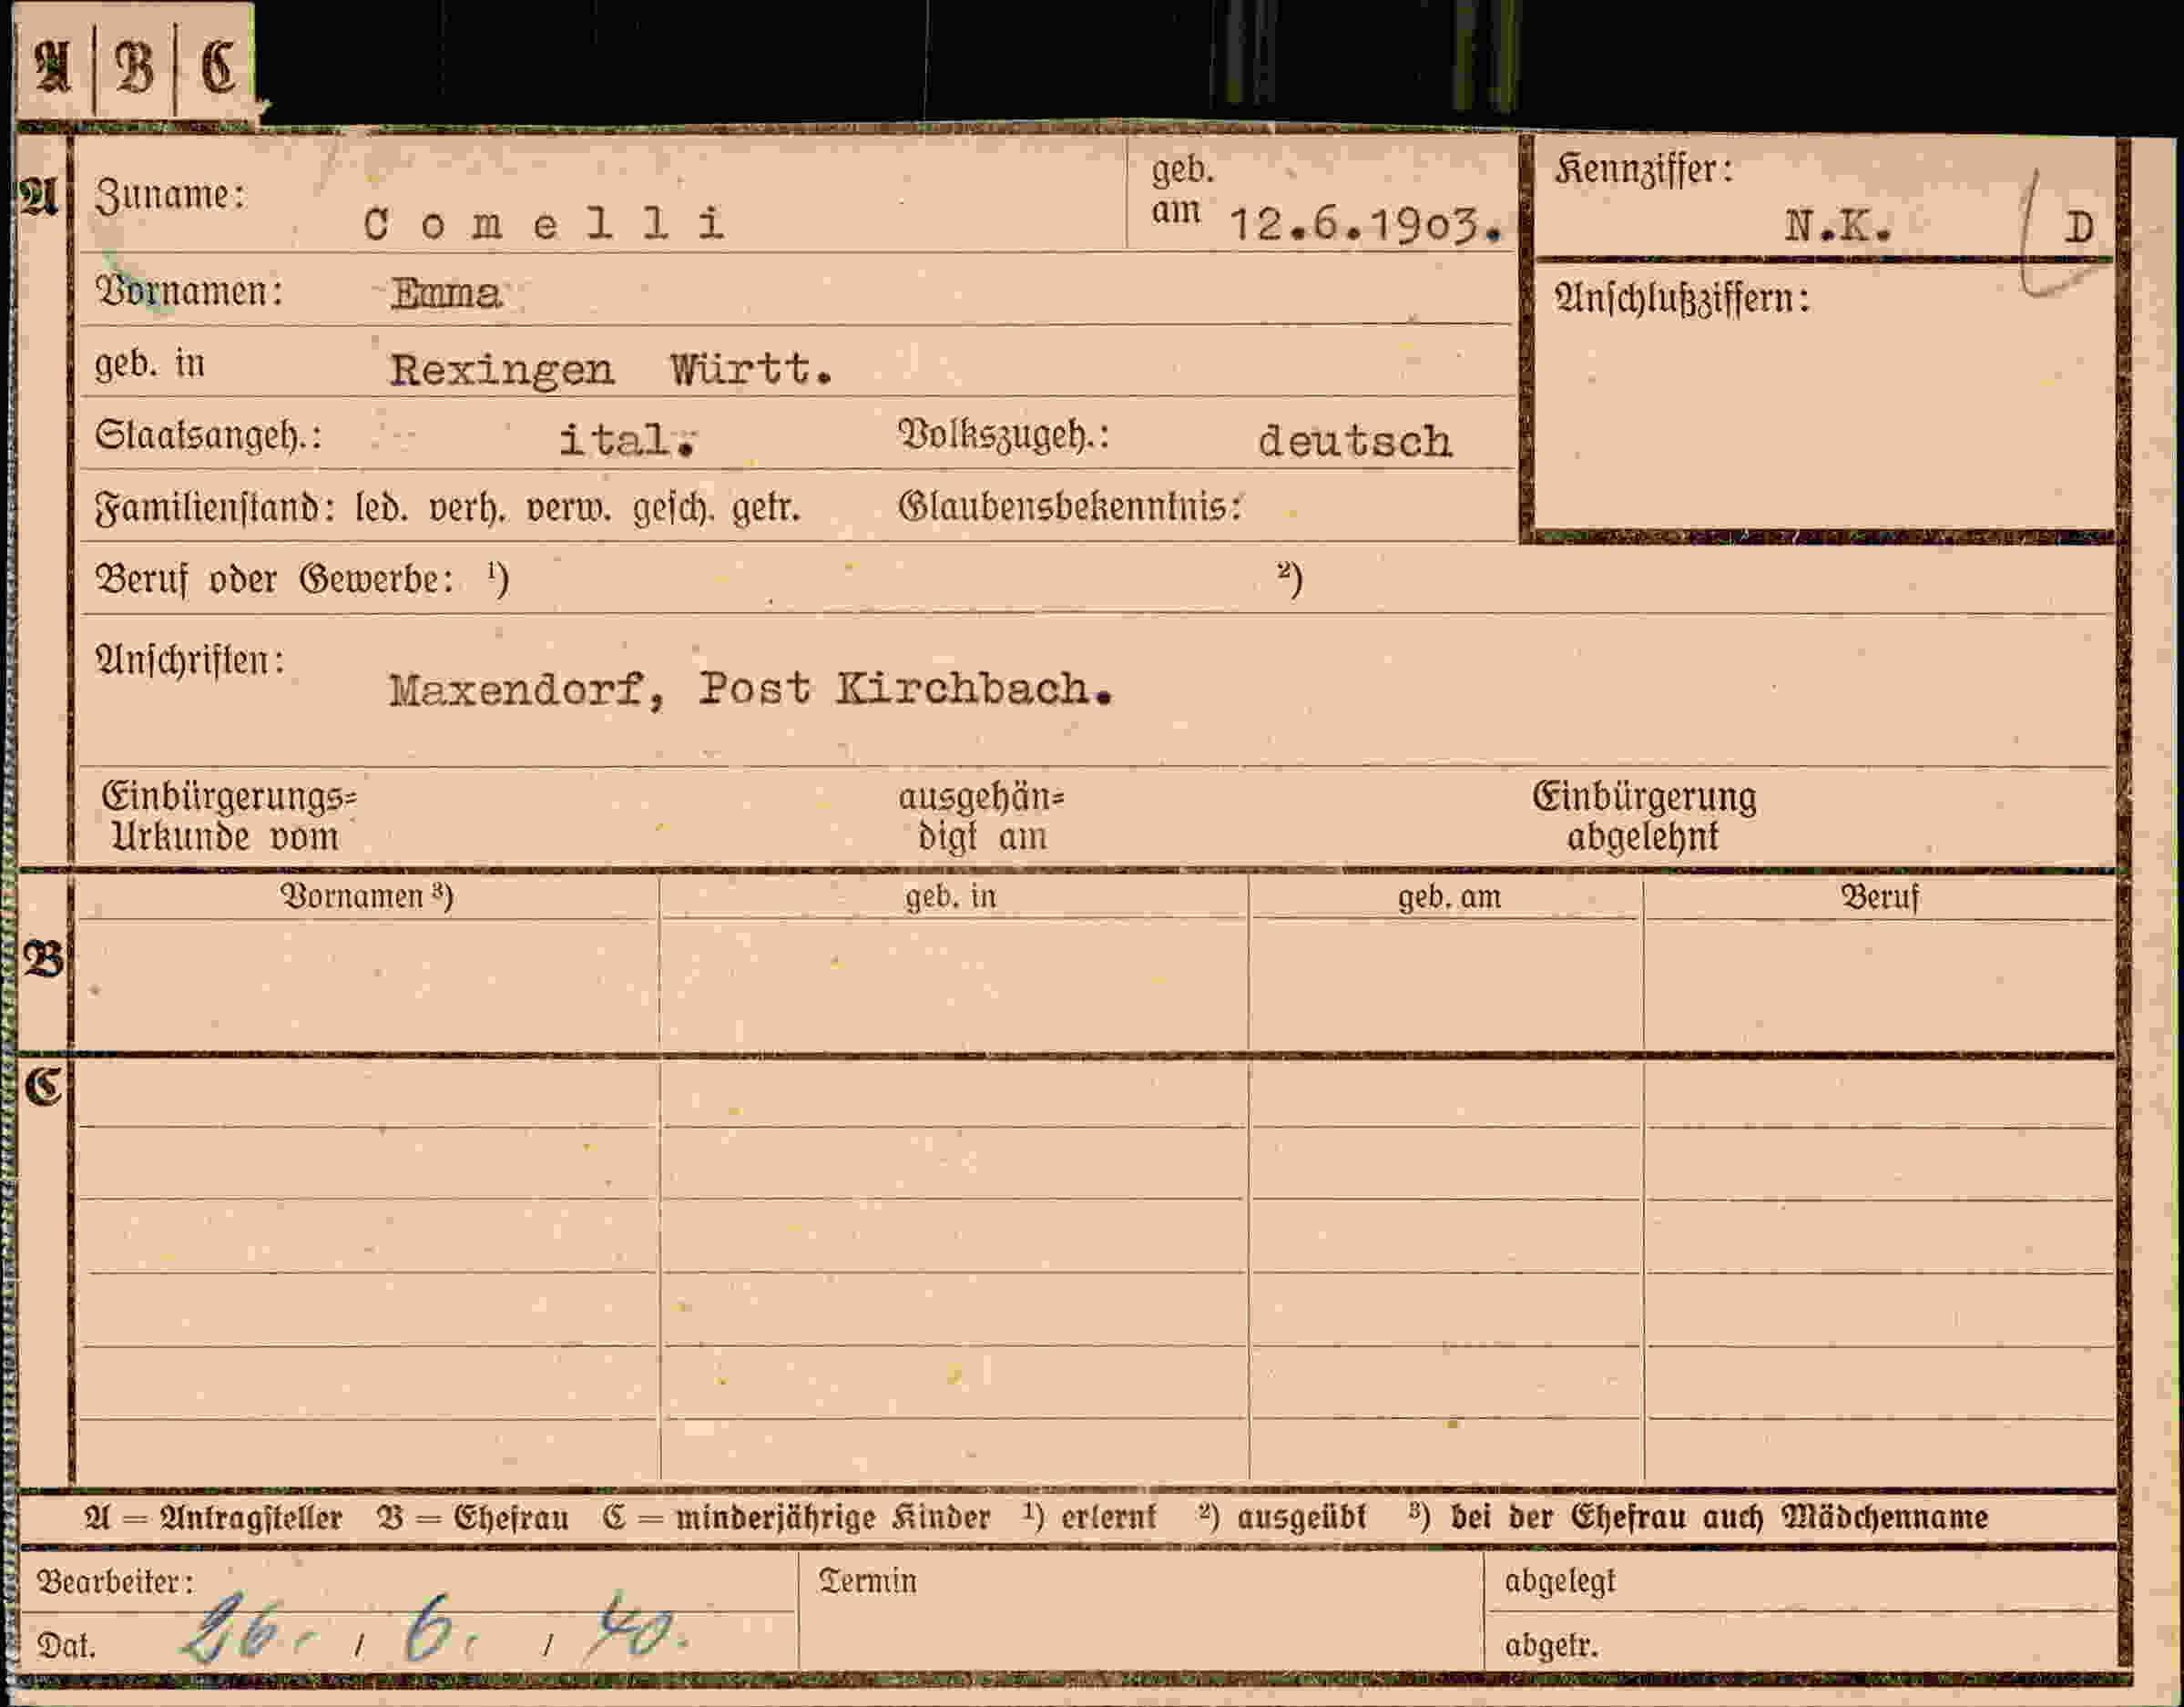 A | B | C
A
Zuname: Comelli geb. am 12.6.1903.
Kennziffer: N.K. D
Vornamen: Emma
Anschlußziffern:
geb. in Rexingen Württ.
Staatsangeh.: ital. Volkszugeh.: deutsch
Familienstand: led. verh. verw. gesch. getr. Glaubensbekenntnis:
Beruf oder Gewerbe: ¹) ²)
Anschriften: Maxendorf, Post Kirchbach.
Einbürgerungs= ausgehän= Einbürgerung
Urkunde vom digt am abgelehnt
Vornamen ³) geb. in geb. am Beruf
B
C
A = Antragsteller B = Ehefrau C = minderjährige Kinder ¹) erlernt ²) ausgeübt ³) bei der Ehefrau auch Mädchenname
Bearbeiter: Termin abgelegt
Dat. 26. / 6. / 40. abgetr.